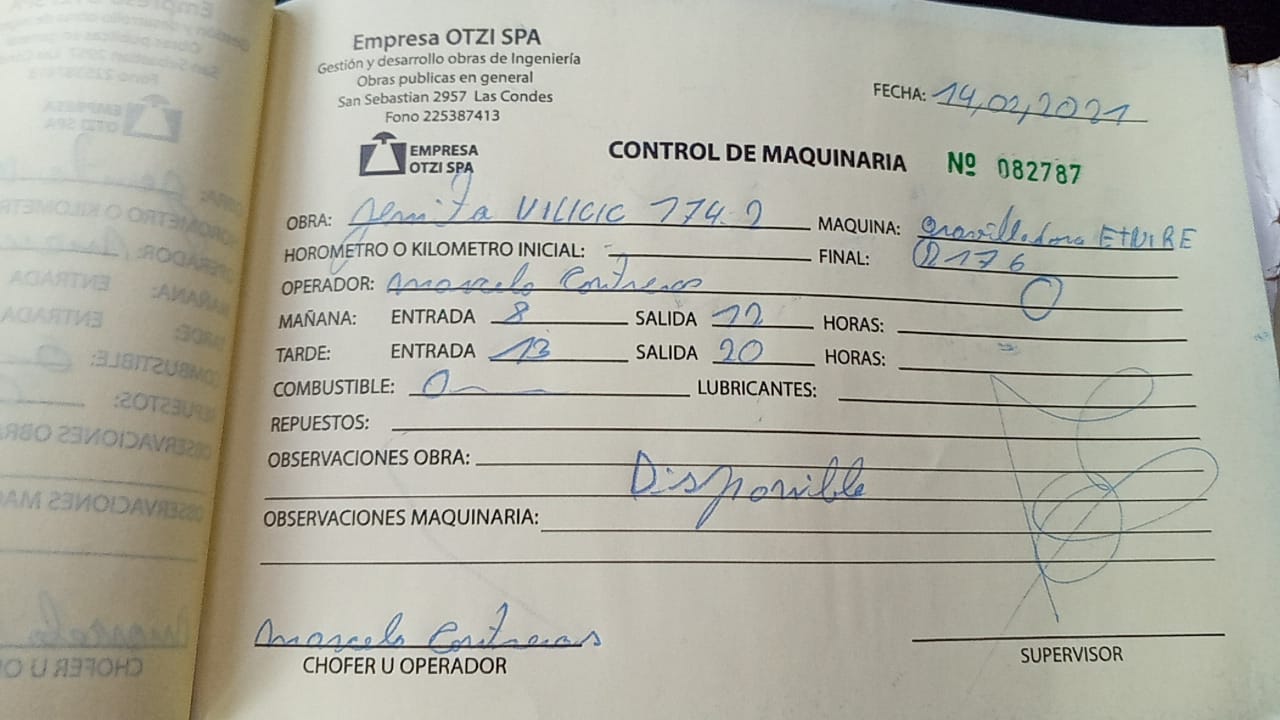 Empresa OTZI SPA
Gestión y desarrollo obras de Ingeniería
Obras publicas en general
San Sebastian 2957 Las Condes
Fono 225387413
EMPRESA
OTZI SPA
FECHA: 14,02,2021
CONTROL DE MAQUINARIA Nº 082787
OBRA: VILICIC MAQUINA: Gravilladora ETNYRE
HOROMETRO O KILOMETRO INICIAL: FINAL: 2176
OPERADOR: Marcelo Contreras 0
MAÑANA: ENTRADA 8 SALIDA 12 HORAS:
TARDE: ENTRADA 13 SALIDA 20 HORAS:
COMBUSTIBLE: 0 LUBRICANTES:
REPUESTOS:
OBSERVACIONES OBRA:
Disponible
OBSERVACIONES MAQUINARIA:
Marcelo Contreras
CHOFER U OPERADOR
SUPERVISOR